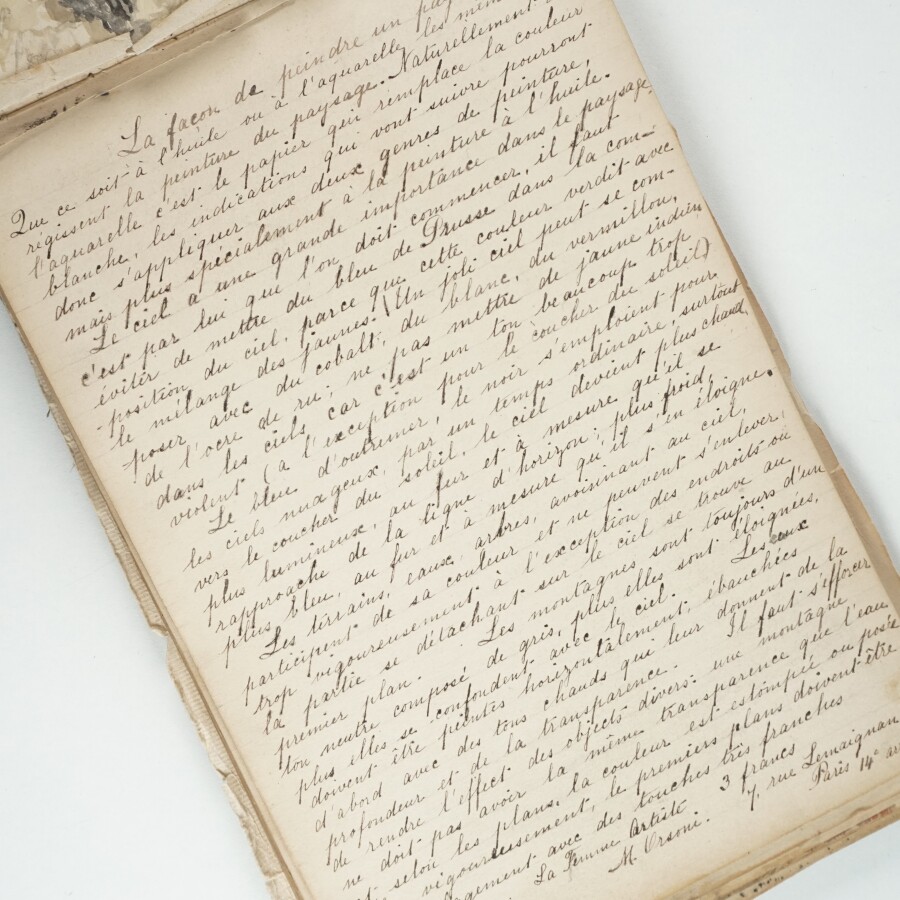 La façon de peindre un
Que ce soit à l'huile ou à l'aquarelle, les mêm
régissent la peinture du paysage. Naturellement
l'aquarelle c'est le papier qui remplace la couleur
blanche, les indications qui vont suivre pourront
donc s'appliquer aux deux genres de peinture,
mais plus spécialement à la peinture à l'huile.
Le ciel a une grande importance dans le paysage
c'est par lui que l'on doit commencer, il faut
éviter de mettre du bleu de Prusse dans la com-
-position du ciel, parce que cette couleur verdit avec
le mélange des jaunes. (Un joli ciel peut se com-
poser avec du cobalt, du blanc, du vermillon,
de l'ocre de ru; ne pas mettre de jaune indien
dans les ciels, car c'est un ton beaucoup trop
violent (à l'exception pour le coucher du soleil)
Le bleu d'outremer, le noir s'emploient pour
les ciels nuageux, par un temps ordinaire, surtout
vers le coucher du soleil, le ciel devient plus chaud,
plus lumineux, au fur et à mesure qu'il se
rapproche de la ligne d'horizon; plus froid,
plus bleu, au fur et à mesure qu'il s'en éloigne.
Les terrains, eaux, arbres, avoisinant au ciel,
participent de sa couleur et ne peuvent s'enlever
trop vigoureusement à l'exception des endroits où
la partie se détachant sur le ciel se trouve au
premier plan. Les montagnes sont toujours d'un
ton neutre composé de gris, plus elles sont éloignées,
plus elles se confondent avec le ciel. Les eaux
doivent être peintes horizontalement, ébauchées
d'abord avec des tons chauds qui leur donnent de la
profondeur et de la transparence. Il faut s'efforcer
de rendre l'effet des objets divers: une montagne
ne doit pas avoir la même transparence que l'eau
selon les plans, la couleur est estompée ou posée
vigoureusement, le premiers plans doivent être
avec des touches très franches
La Femme Artiste 3 francs
M. Orsoni. 7, rue Lemaignan
Paris 14e ar